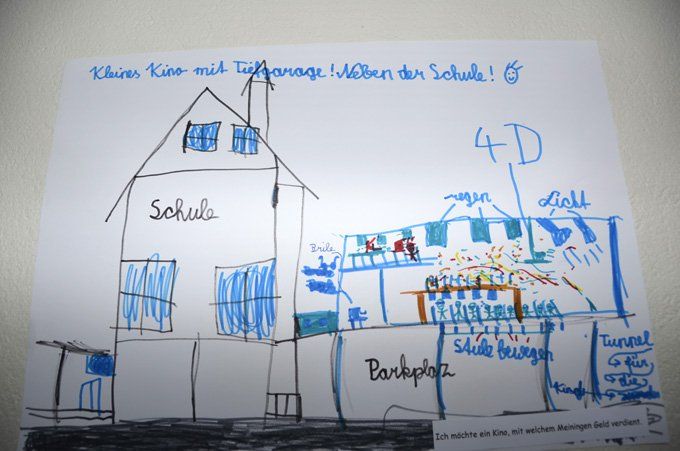 Kleines Kino mit Tiefgarage! Neben der Schule!
4D
regen
Licht
Schule
Brile
Stule bewegen
Parkplaz
Tunnel
für
die
Ich möchte ein Kino, mit welchem Meiningen Geld verdient.